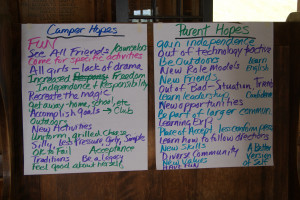 Camper Hopes
FUN
See All Friends Remember
Come for specific activities
All girls - lack of drama
Increased Freedom
Independence & Responsibility
Recreate the magic
Get away - home, school, etc.
Accomplish Goals → Club
Outdoors
New Activities
Uniform, grilled cheese
Silly, Less Pressure, Girly, Simple
OK to Fail Acceptance
Traditions Be a legacy
Feel good about herself
Parent Hopes
Gain independence
Out of technology practice
Be Outdoors learn
New Role Models English
New Friends
Out of Bad Situation
Learn leadership Confidence
New opportunities
Be part of larger common
Learning Exp.
Have Accept
Learn how to follow directions
New Skills A Better
Diverse Community Version
New Values of Self
Have Fun